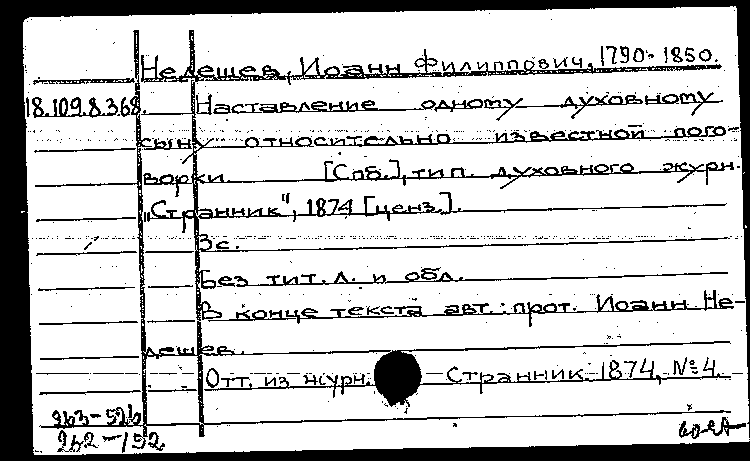 Недешев, Иоанн Филиппович, 1790-1850.
18.109.8.368. Наставление одному духовному
сыну относительно известной пого-
ворки. [Спб.], тип. духовного журн.
"Странник", 1874 [ценз.].
3с.
Без тит. л. и обл.
В конце текста авт.: прот. Иоанн Не-
дешев.
Отт. из журн. Странник. 1874, №4.
263-526
262-152